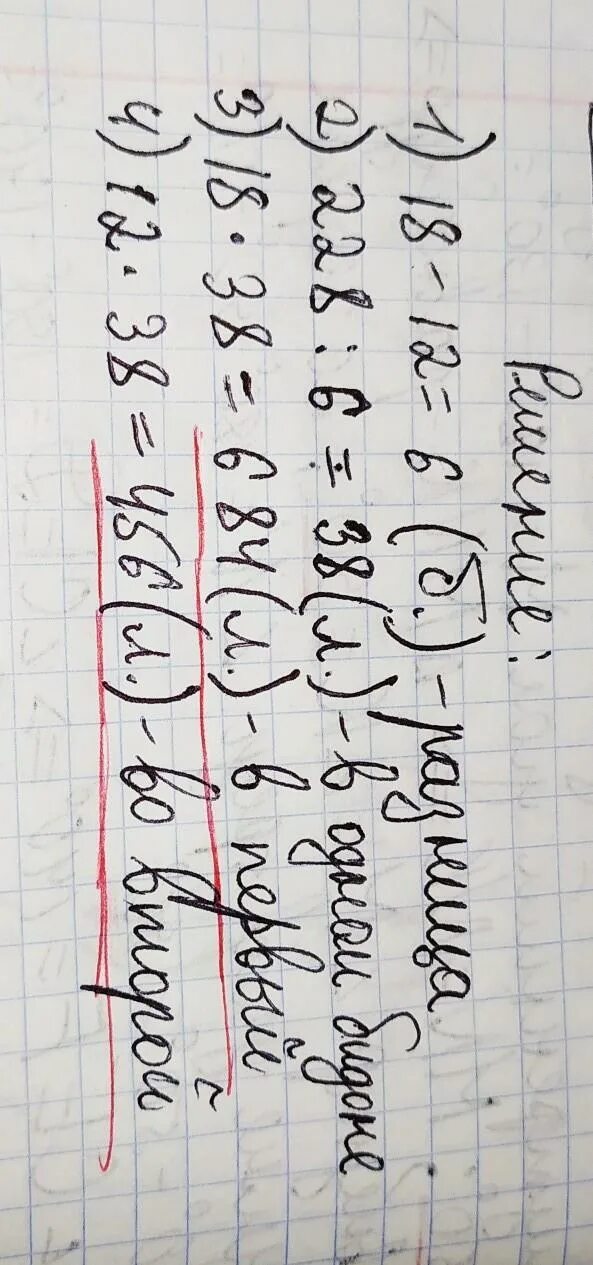 Решение:
1) 18 - 12 = 6 (б.) - разница
2) 228 : 6 = 38 (л.) - в одном бидоне
3) 18 · 38 = 684 (л.) - в первый
4) 12 · 38 = 456 (л.) - во второй